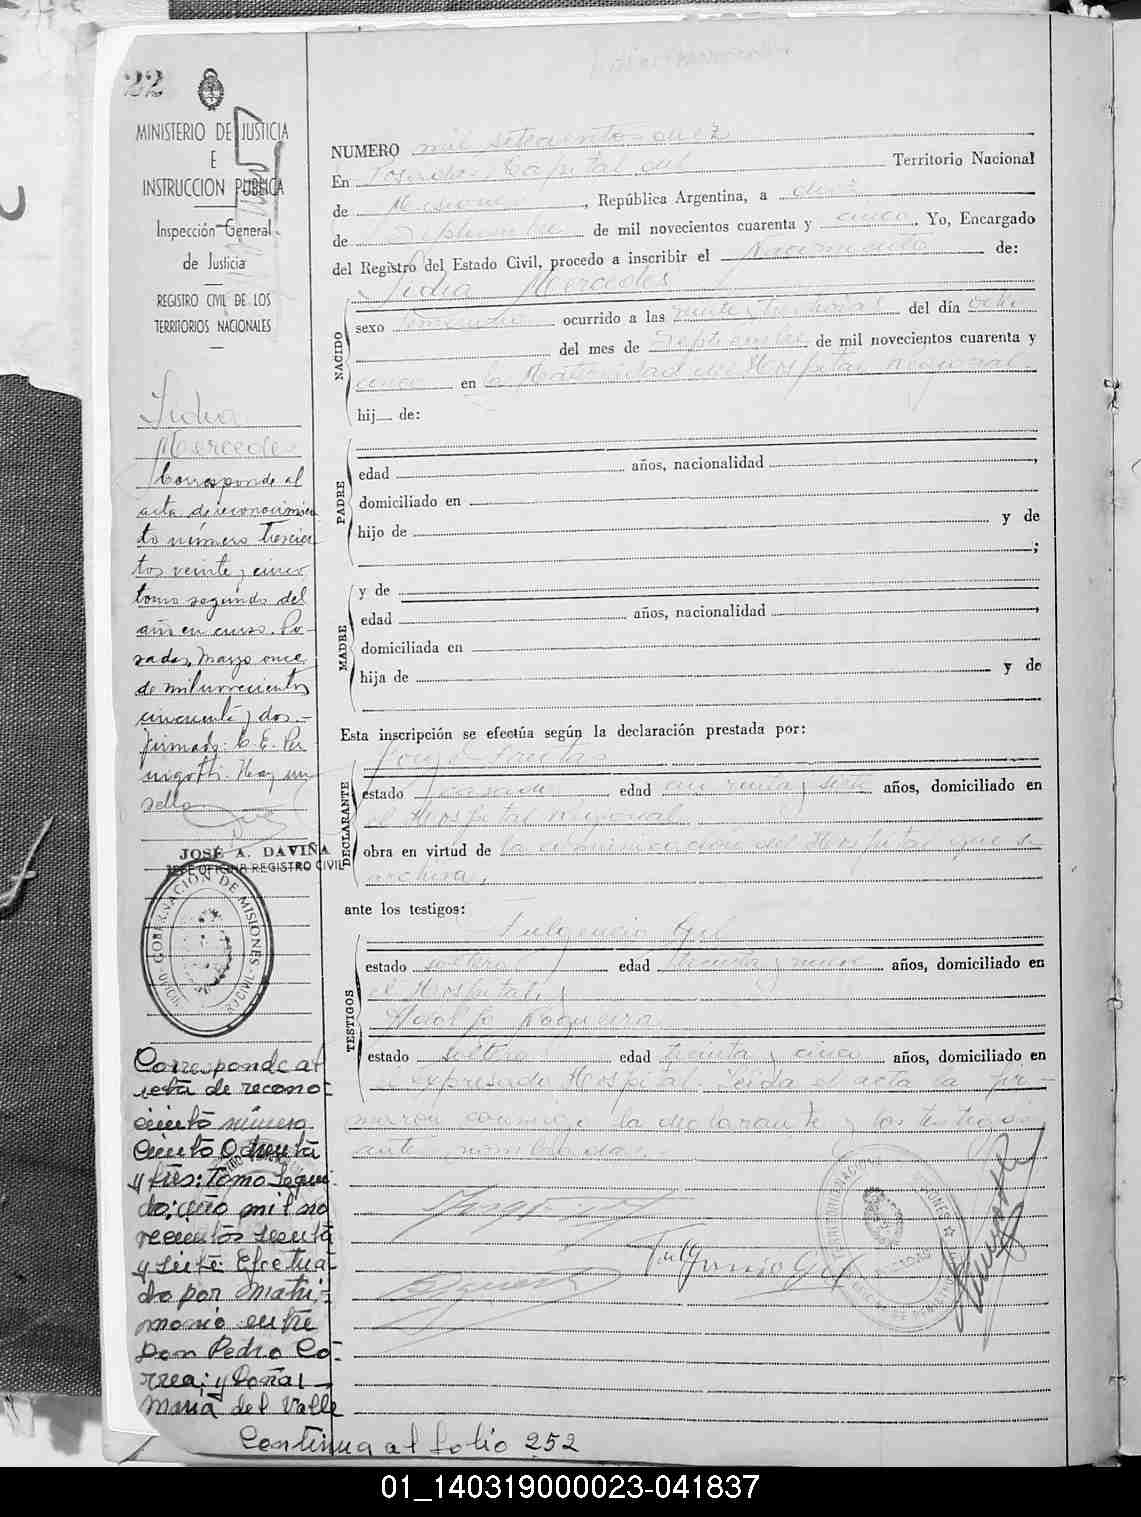 22
MINISTERIO DE JUSTICIA
E
INSTRUCCION PUBLICA
Inspección General
de Justicia
REGISTRO CIVIL DE LOS
TERRITORIOS NACIONALES
Lidia
Mercedes
Corresponde al
acta de reconocimien
to número trescien
tos veinte y cinco
tomo segundo del
año en curso. Po-
sadas, Mayo once
de mil novecientos
cincuenta y dos.-
firmado: C. E. Pe
rugotti. Hay un
sello
JOSÉ A. DAVIÑA
JEFE OFICINA REGISTRO CIVIL
GOBERNACIÓN DE MISIONES
Corresponde al
acta de recono-
cimiento número
Ciento Ochenta
y tres: Tomo Segun-
do: año mil no
vecientos sesenta
y siete: Efectua-
do por Matri-
monio entre
Don Pedro Co-
rrea; y Doña
María del Valle
Continua al folio 252
NUMERO mil setecientos diez
En Posadas Capital del Territorio Nacional
de Misiones, República Argentina, a diez
de Septiembre de mil novecientos cuarenta y cinco, Yo, Encargado
del Registro del Estado Civil, procedo a inscribir el nacimiento de:
Lidia Mercedes
NACIDO
sexo femenino ocurrido a las veinte y tres horas del día ocho
del mes de Septiembre de mil novecientos cuarenta y
cinco en la Maternidad del Hospital Regional.
hij de:
PADRE
edad años, nacionalidad ,
domiciliado en
hijo de y de
;
MADRE
y de
edad años, nacionalidad ,
domiciliada en
hija de y de
Esta inscripción se efectúa según la declaración prestada por:
DECLARANTE
Jorge
estado casado edad cincuenta y siete años, domiciliado en
el Hospital Regional
obra en virtud de la comunicación del Hospital que se
archiva.
ante los testigos:
TESTIGOS
Fulgencio Gil
estado soltero edad treinta y nueve años, domiciliado en
el Hospital, y
Adolfo Nogueira
estado soltero edad treinta y cinco años, domiciliado en
el expresado Hospital. Leída el acta la fir-
maron conmigo la declarante y los testigos
ante nombrados.
Fulgencio Gil
01_140319000023-041837